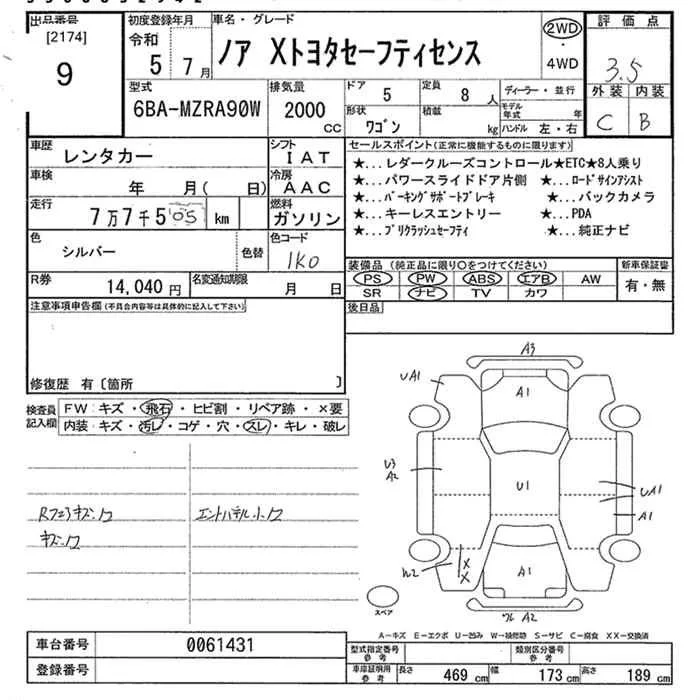 出品番号
[2174]
9
初度登録年月
令和
5 7月
車名・グレード
ノア Xトヨタセーフティセンス
2WD
・
4WD
評価点
3.5
外装 内装
C B
型式
6BA-MZRA90W
排気量
2000
CC
ドア
5
定員
8 人
形状
ワゴン
積載
kg
ディーラー・並行
モデル年式 年
ハンドル 左・右
車歴
レンタカー
シフト
IAT
車検
年 月( 日)
冷房
AAC
走行
7万7千505 km
燃料
ガソリン
色
シルバー
色替
色コード
1K0
R券
14,040 円
名変通知期限
月 日
セールスポイント(正常に機能するものに限ります)
★...レダークルーズコントロール★ETC★8人乗り
★...パワースライドドア片側 ★...ロードサインアシスト
★...パーキングサポートブレーキ ★...バックカメラ
★...キーレスエントリー ★...PDA
★...プリクラッシュセーフティ ★...純正ナビ
装備品(純正品に限り○をつけてください)
PS PW ABS エアB AW
SR ナビ TV カワ
新車保証書
有・無
注意事項申告欄(不具合内容等は具体的に記入して下さい)
後日品
修復歴 有〔箇所 〕
検査員
記入欄
FW:キズ・飛石・ヒビ割・リペア跡・×要
内装:キズ・汚レ・コゲ・穴・スレ・キレ・破レ
RフェンダキズW
キズW
エントパネル小W
A3
UA1
A1
U3
A2
U1
UA1
A1
W2
XX
A1
A2
スペア
A-キズ E-エクボ U-凹み W-補修跡 S-サビ C-腐食 XX-交換済
車台番号
0061431
登録番号
型式指定番号
参考
類別区分番号
参考
車庫証明用
参考
長さ 469 cm 幅 173 cm 高さ 189 cm